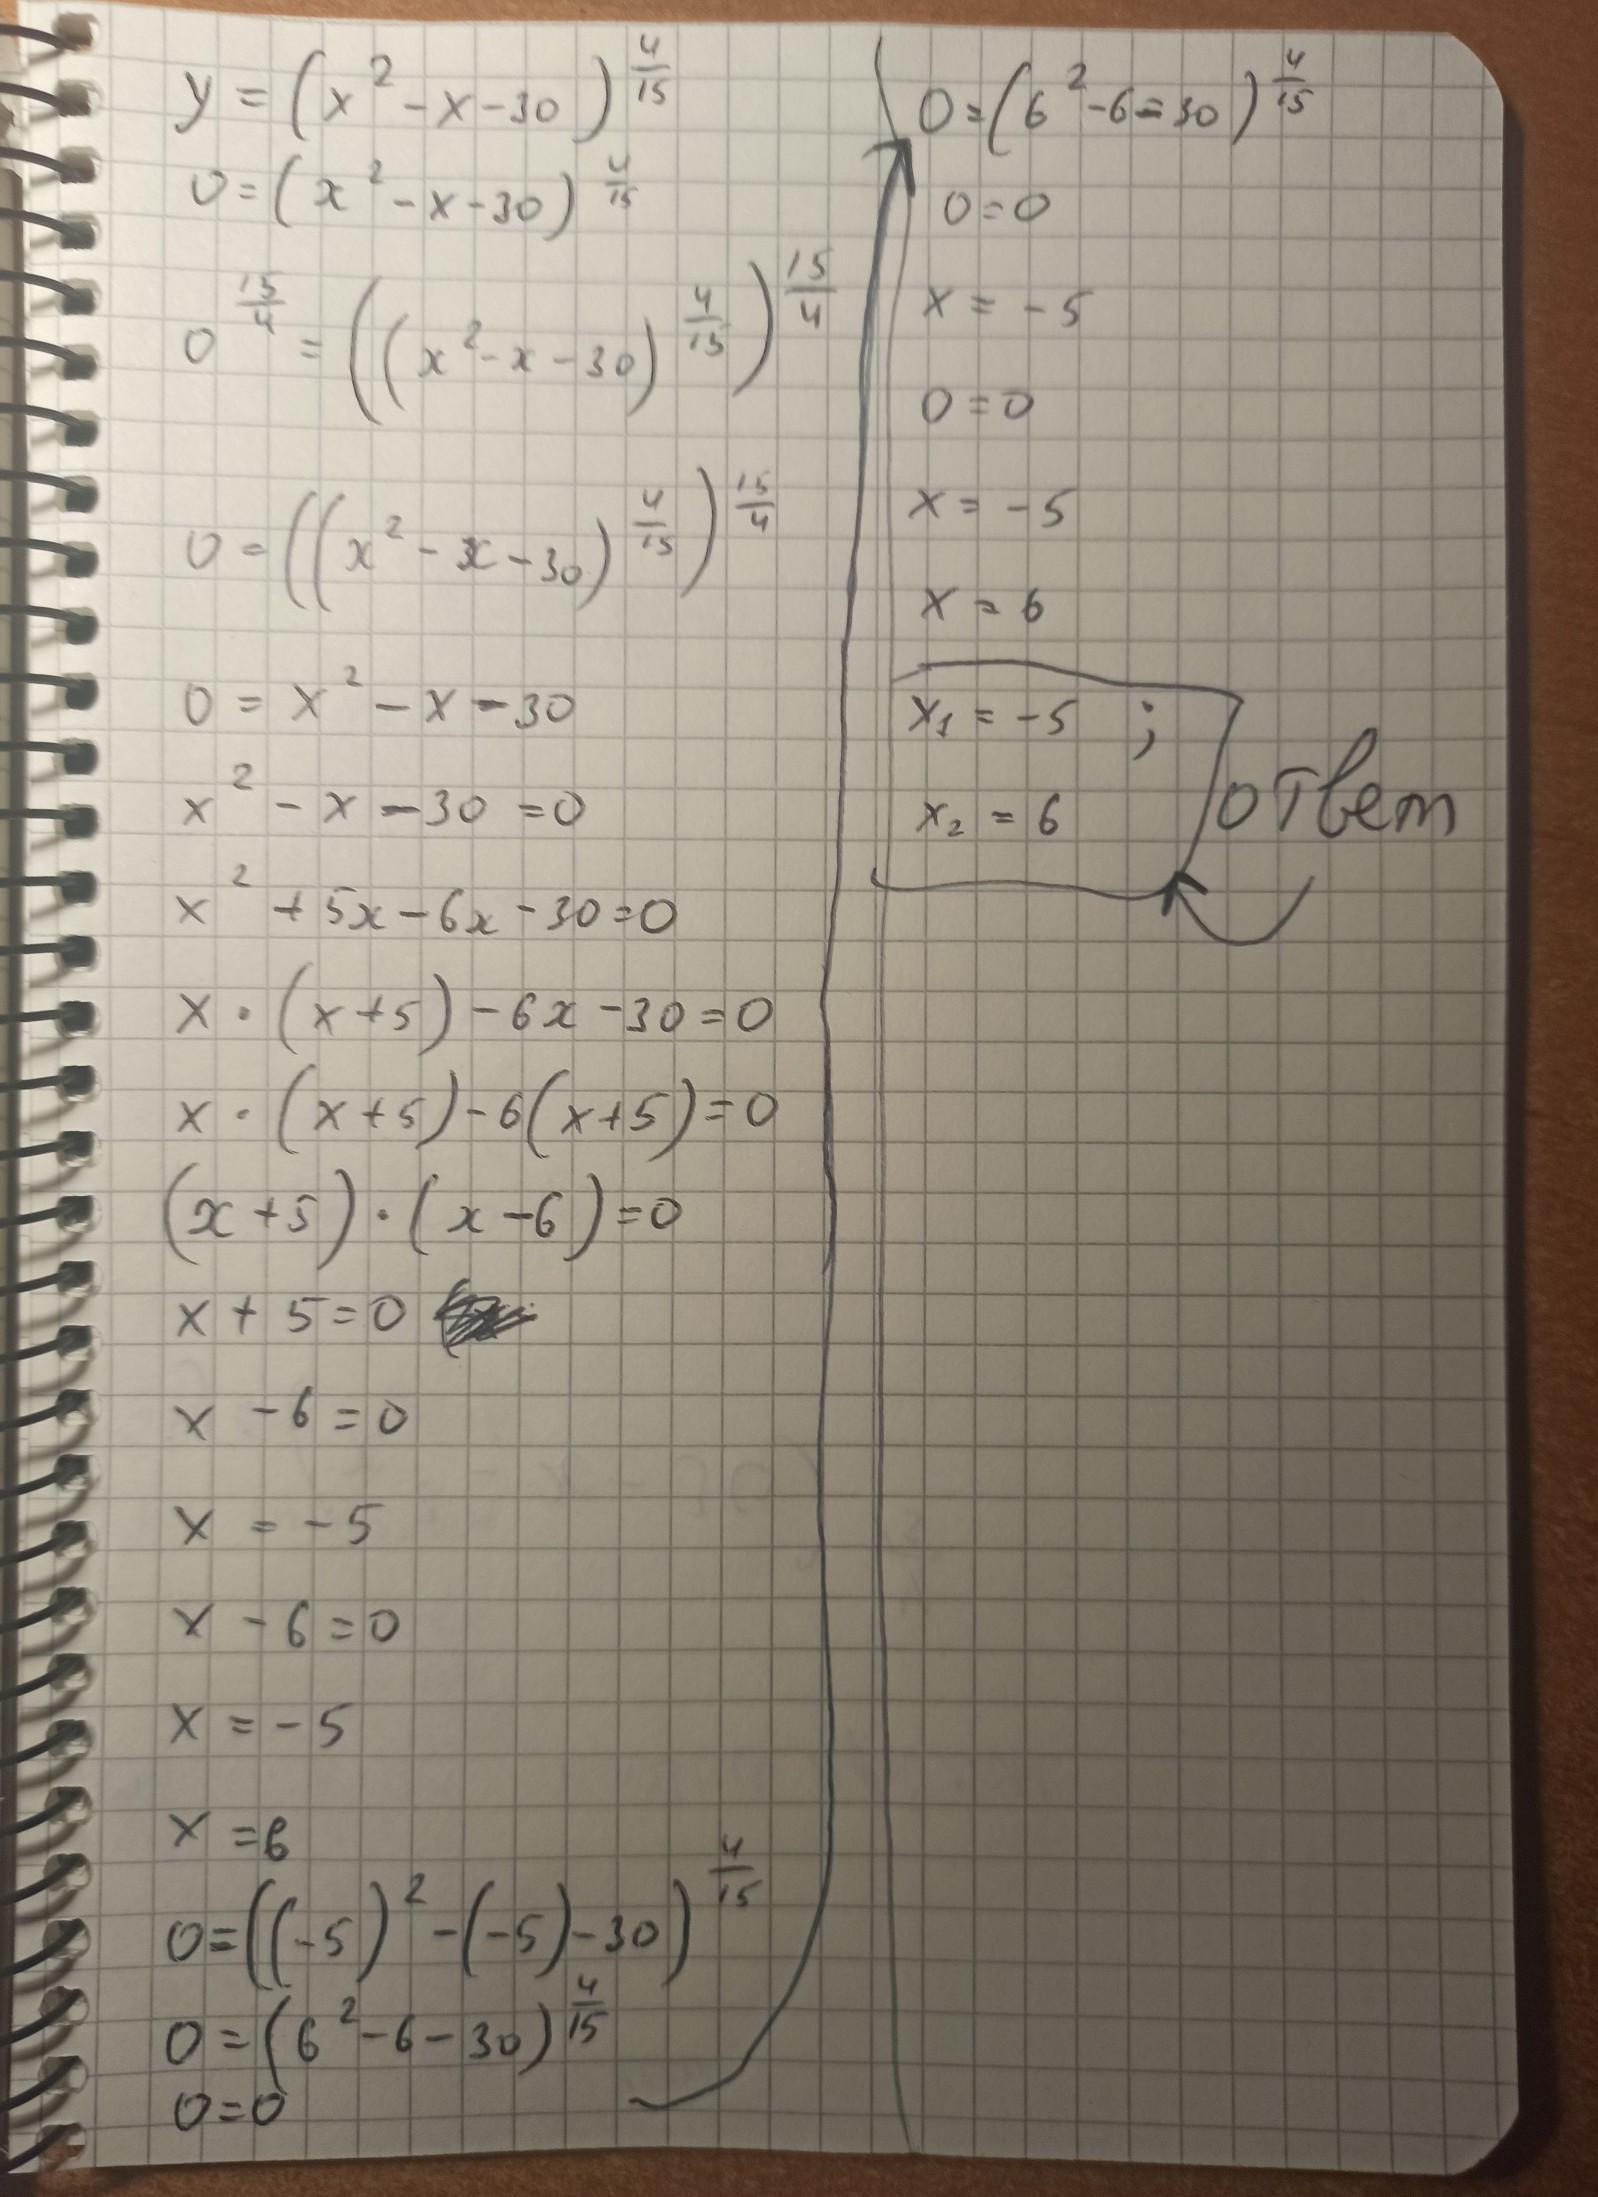 y = (x² - x - 30)^(4/15)
0 = (x² - x - 30)^(4/15)
0^(15/4) = ((x² - x - 30)^(4/15))^(15/4)
0 = ((x² - x - 30)^(4/15))^(15/4)
0 = x² - x - 30
x² - x - 30 = 0
x² + 5x - 6x - 30 = 0
x · (x + 5) - 6x - 30 = 0
x · (x + 5) - 6(x + 5) = 0
(x + 5) · (x - 6) = 0
x + 5 = 0
x - 6 = 0
x = -5
x - 6 = 0
x = -5
x = 6
0 = ((-5)² - (-5) - 30)^(4/15)
0 = (6² - 6 - 30)^(4/15)
0 = 0
0 = (6² - 6 = 30)^(4/15)
0 = 0
x = -5
0 = 0
x = -5
x = 6
x₁ = -5 ;
x₂ = 6
ответ